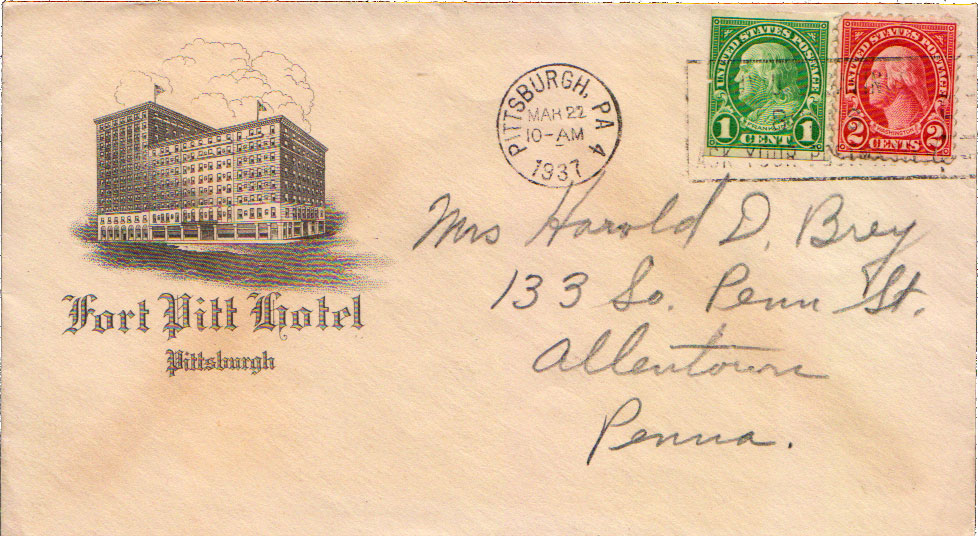 Fort Pitt Hotel
Pittsburgh
PITTSBURGH, PA 4
MAR 22
10-AM
1937
UNITED STATES POSTAGE
FRANKLIN
1 CENT 1
UNITED STATES POSTAGE
WASHINGTON
2 CENTS 2
YOUR
Mrs Harold D. Brey
133 So. Penn St.
Allentown
Penna.